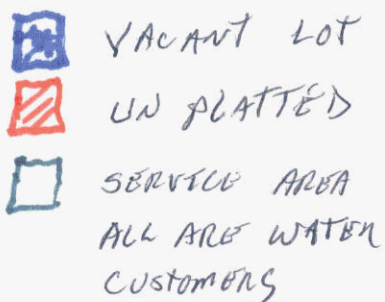 VACANT LOT
UN PLATTED
SERVICE AREA
ALL ARE WATER
CUSTOMERS